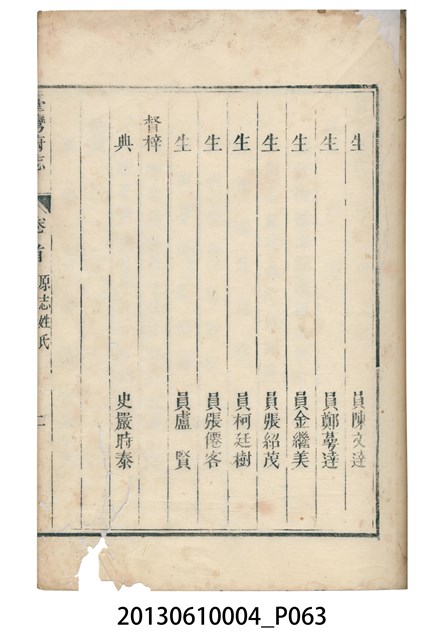 生員陳文達
生員鄭夢達
生員金繼美
生員張紹茂
生員柯廷樹
生員張僊客
生員盧賢
督梓
典史嚴時泰
臺灣府志 卷首 原志姓氏 二
20130610004_P063